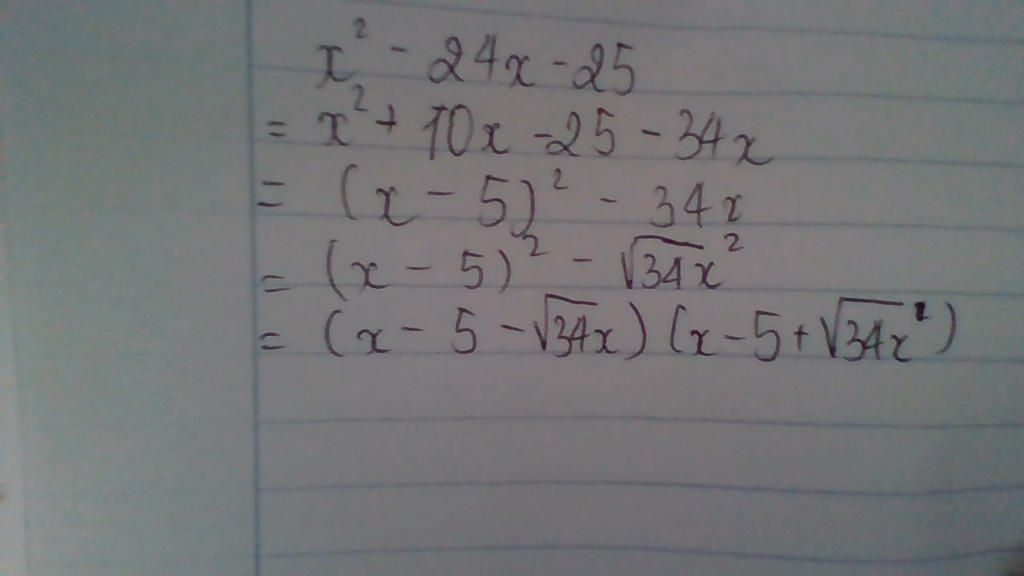 x² - 24x - 25
= x² + 10x - 25 - 34x
= (x - 5)² - 34x
= (x - 5)² - √34x²
= (x - 5 - √34x) (x - 5 + √34x²)